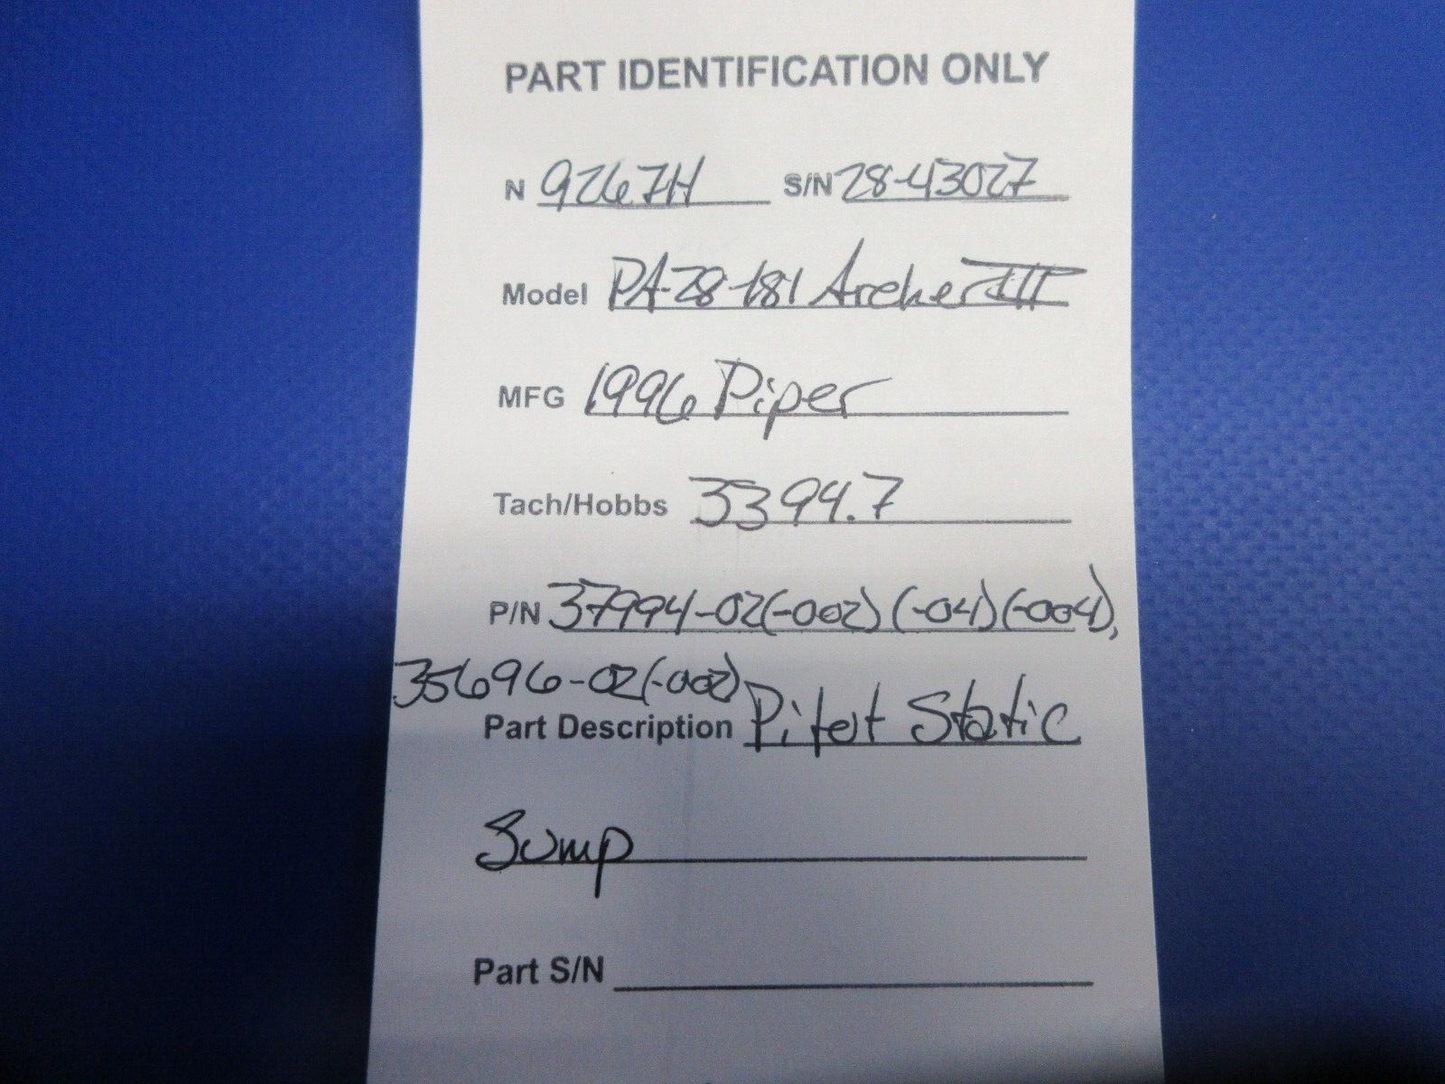 PART IDENTIFICATION ONLY
N 9267H S/N 28-43027
Model PA-28-181 Archer III
MFG 1996 Piper
Tach/Hobbs 3394.7
P/N 37994-02(-002) (-04)(-004),
35696-02(-002)
Part Description Pitot Static
Sump
Part S/N